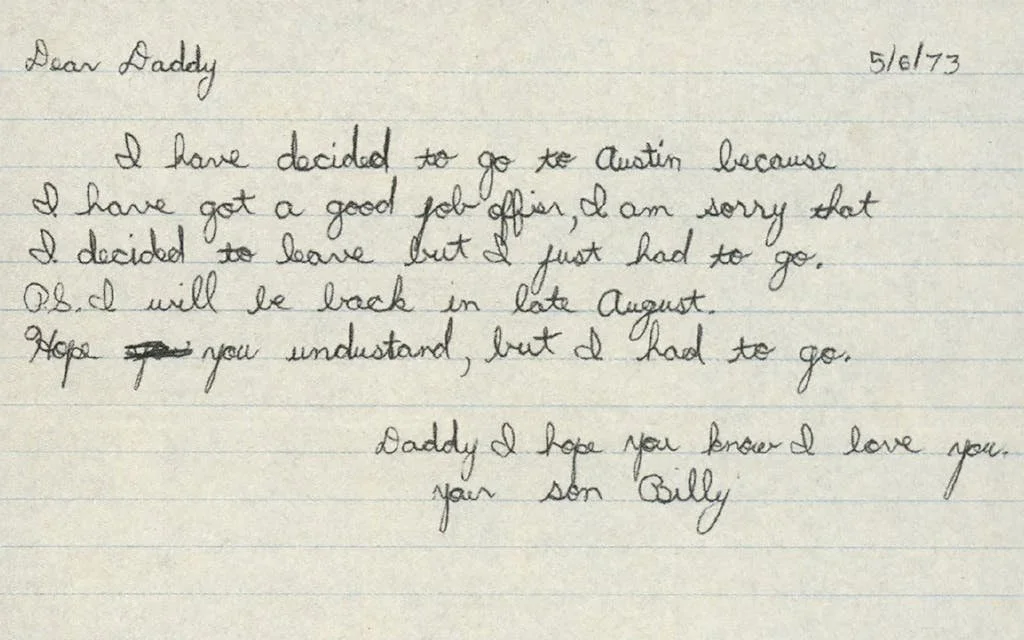 Dear Daddy 5/6/73
I have decided to go to Austin because
I have got a good job offier, I am sorry that
I decided to leave but I just had to go.
P.S. I will be back in late August.
Hope you undustand, but I had to go.
Daddy I hope you know I love you.
your son Billy